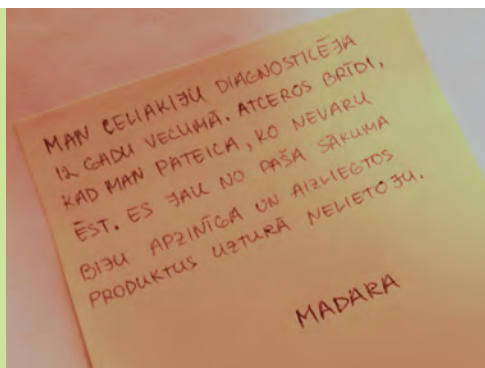 MAN CELIAKIJU DIAGNOSTICĒJA
12 GADU VECUMĀ. ATCEROS BRĪDI,
KAD MAN PATEICA, KO NEVARU
ĒST. ES JAU NO PAŠA SĀKUMA
BIJU APZINĪGA UN AIZLIEGTOS
PRODUKTUS UZTURĀ NELIETOJU.
MADARA